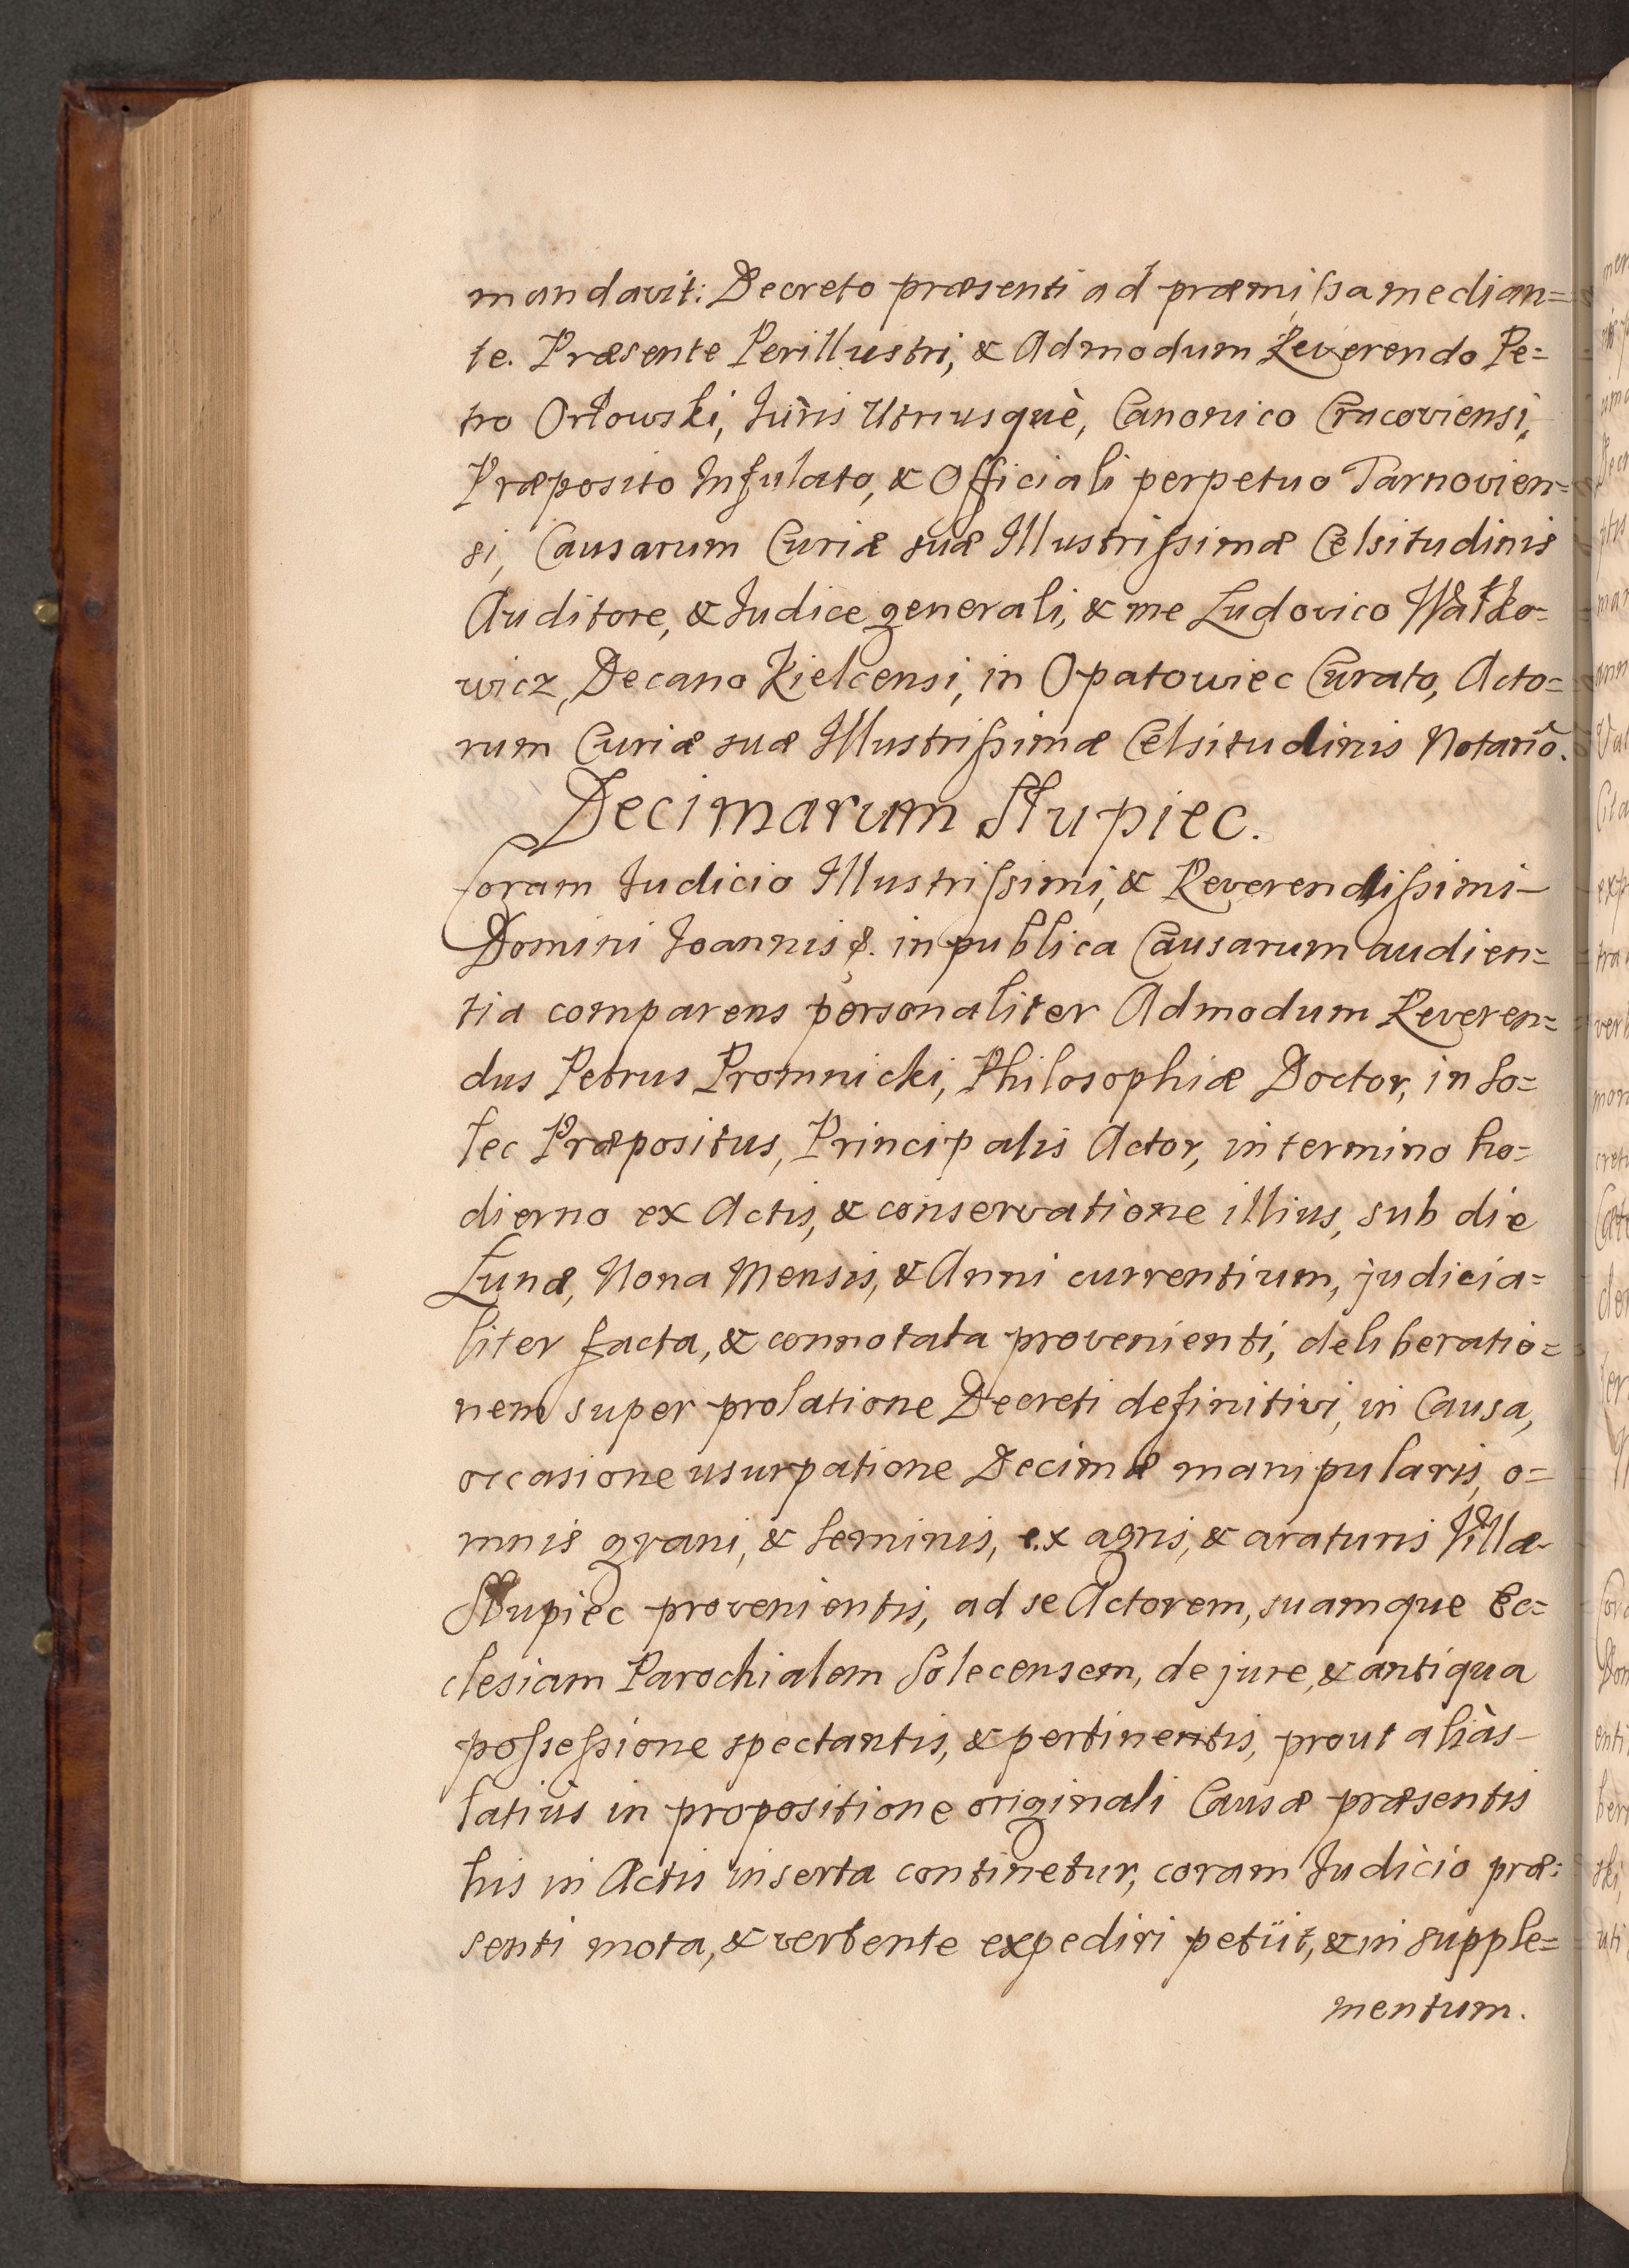 mandavit: Decreto præsenti ad præmissa median=
te. Præsente Perillustri, & Admodum Reverendo Pe=
tro Orłowski, Juris Utriusquè, Canonico Cracoviensi,
Præposito Infulato, & Officiali perpetuo Tarnovien=
si, Causarum Curiæ suæ Illustrissimæ Celsitudinis
Auditore, & Judice generali, & me Ludovico Wałko=
wicz, Decano Kielcensi, in Opatowiec Curato, Acto=
rum Curiæ suæ Illustrissimæ Celsitudinis Notario.
Decimarum Słupiec.
Coram Judicio Illustrissimi, & Reverendissimi
Domini Joannis &. in publica Causarum audien=
tia comparens personaliter Admodum Reveren=
dus Petrus Promnicki, Philosophiæ Doctor, in So=
lec Præpositus, Principalis Actor, in termino ho=
dierno ex Actis, & conservatione illius, sub die
Lunæ, Nona Mensis, & Anni currentium, judicia=
liter facta, & connotata provenienti, deliberatio=
nem super prolatione Decreti definitivi, in Causa,
occasione usurpatione Decimæ manipularis, o=
mnis grani, & seminis, ex agris, & araturis Villæ
Słupiec provenientis, ad se Actorem, suamque Ec=
clesiam Parochialem Solecensem, de jure, & antiqua
possessione spectantis, & pertinentis, prout aliàs
latius in propositione originali Causæ præsentis
his in Actis inserta continetur, coram Judicio præ=
senti mota, & vertente expediri petiit, & in supple=
mentum.